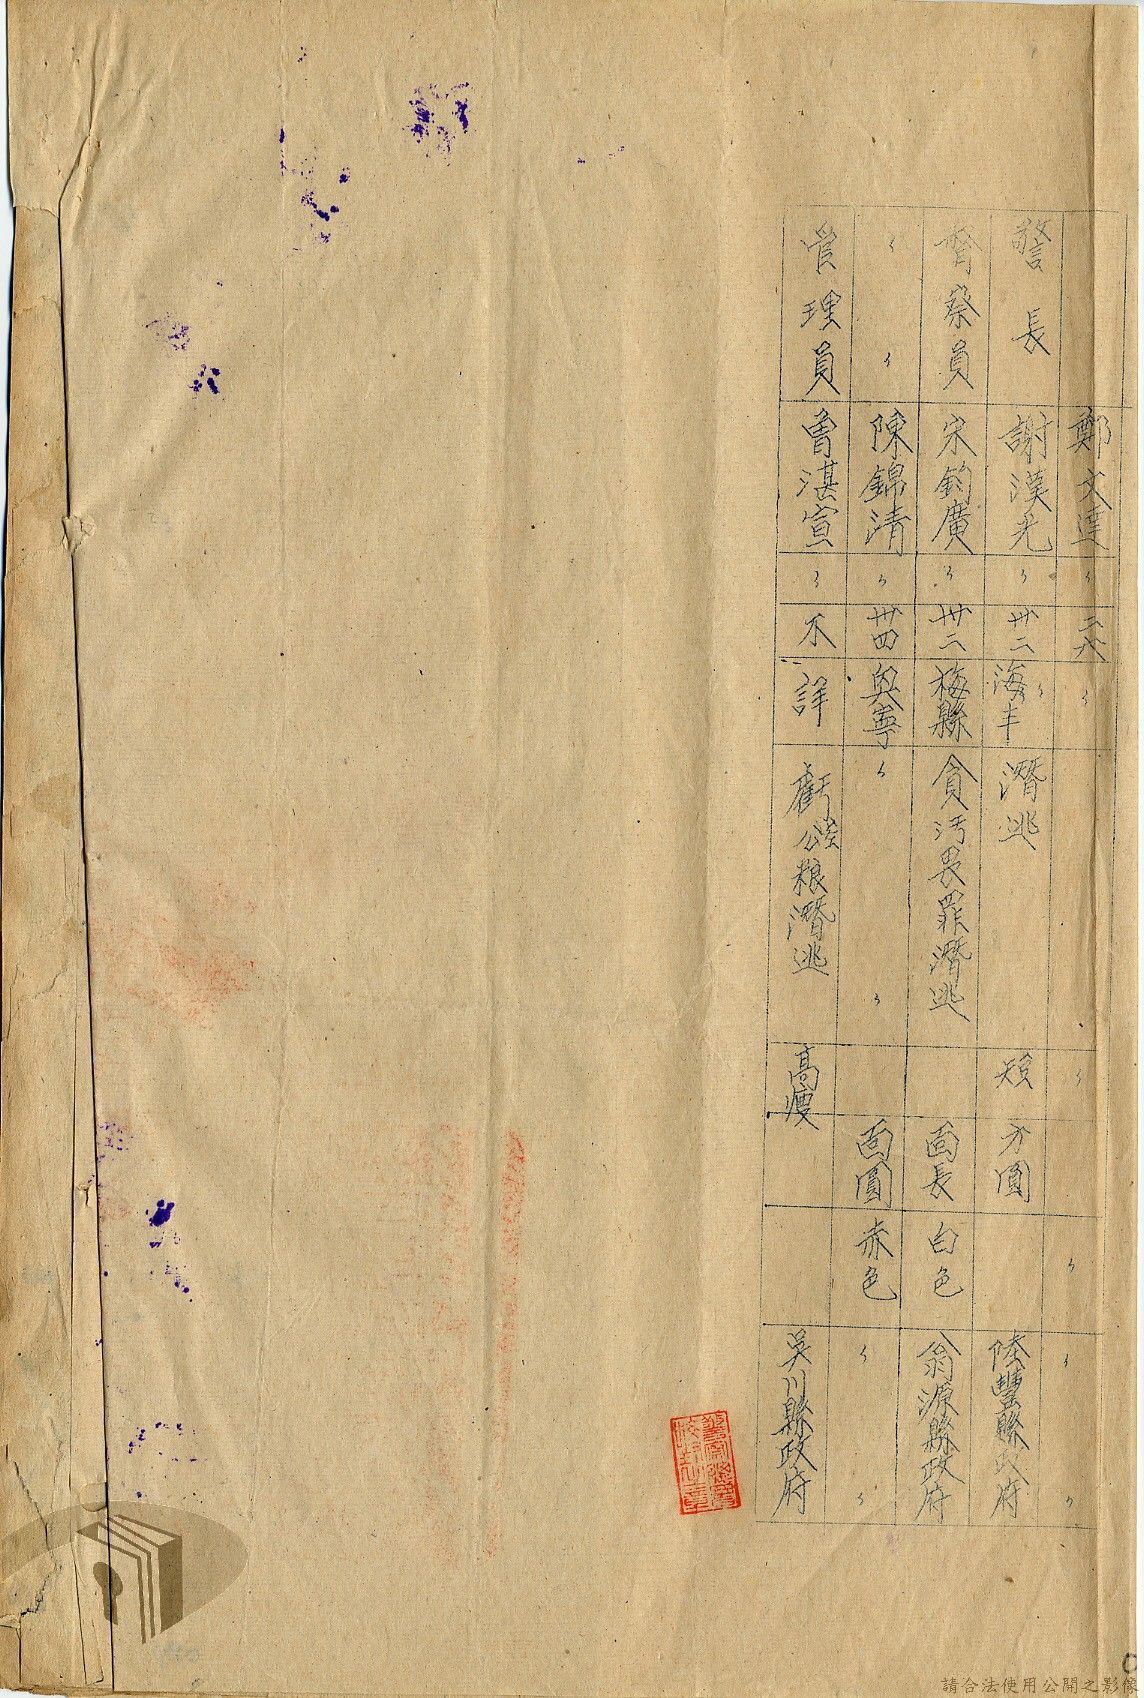 鄭文達 〃 二六 〃 〃 〃 〃 〃
警長 謝漢光 〃 卅二 海丰 〃 潛逃 短 方圓 陸豐縣政府
督察員 宋鈞廣 〃 卅二 梅縣 貪污畏罪潛逃 面長 白色 翁源縣政府
〃 〃 陳錦清 〃 卅四 興寧 〃 〃 面圓 赤色 〃 〃
管理員 曾湛宣 〃 不詳 虧公粮潛逃 高瘦 吳川縣政府
請合法使用公開之影像